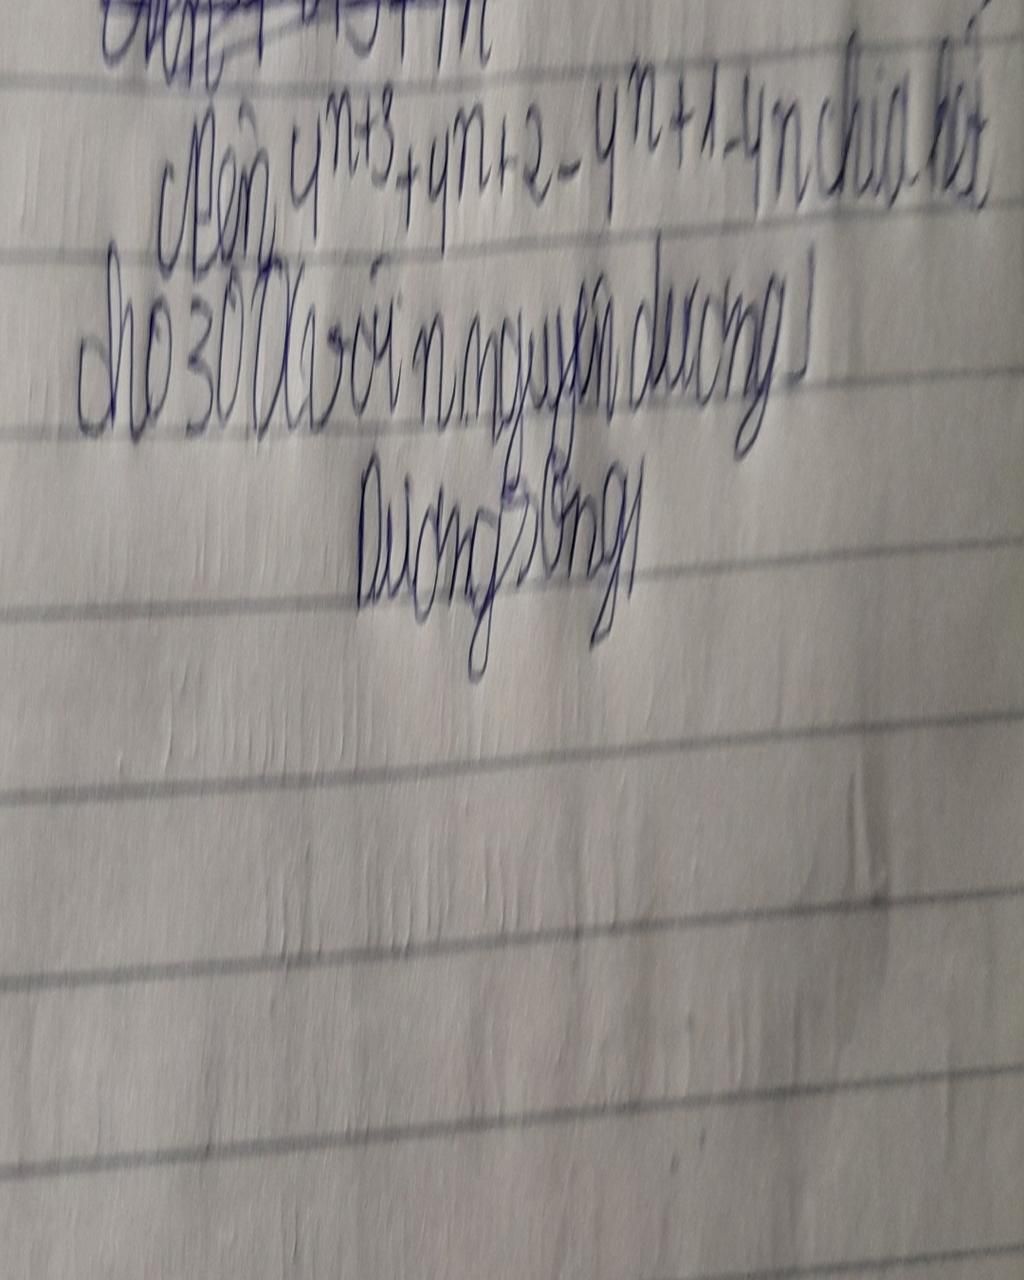 Nên 4^n+3 + 4^n+2 - 4^n+1 - 4^n chia hết
cho 300 với n nguyên dương!
Dương